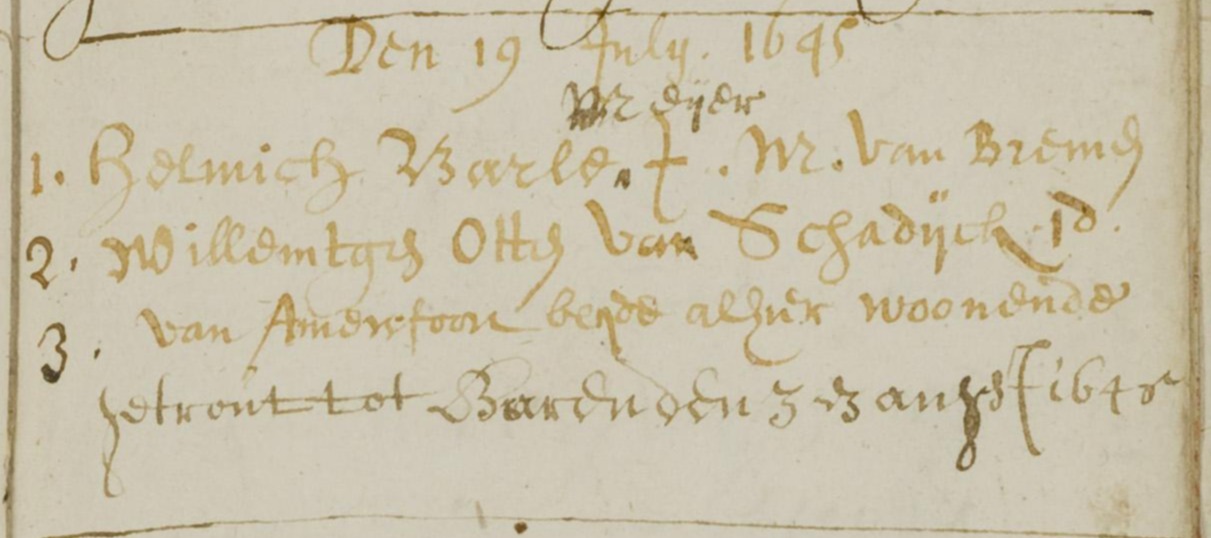 Den 19 July. 1645
Meijer
1. Helmich Barle. J. M. van Brem
2. Willemtgen Otten van Schadijck J d.
3. van Amersfoort beijde alhier woonende
getrout tot Baren den 3 1645